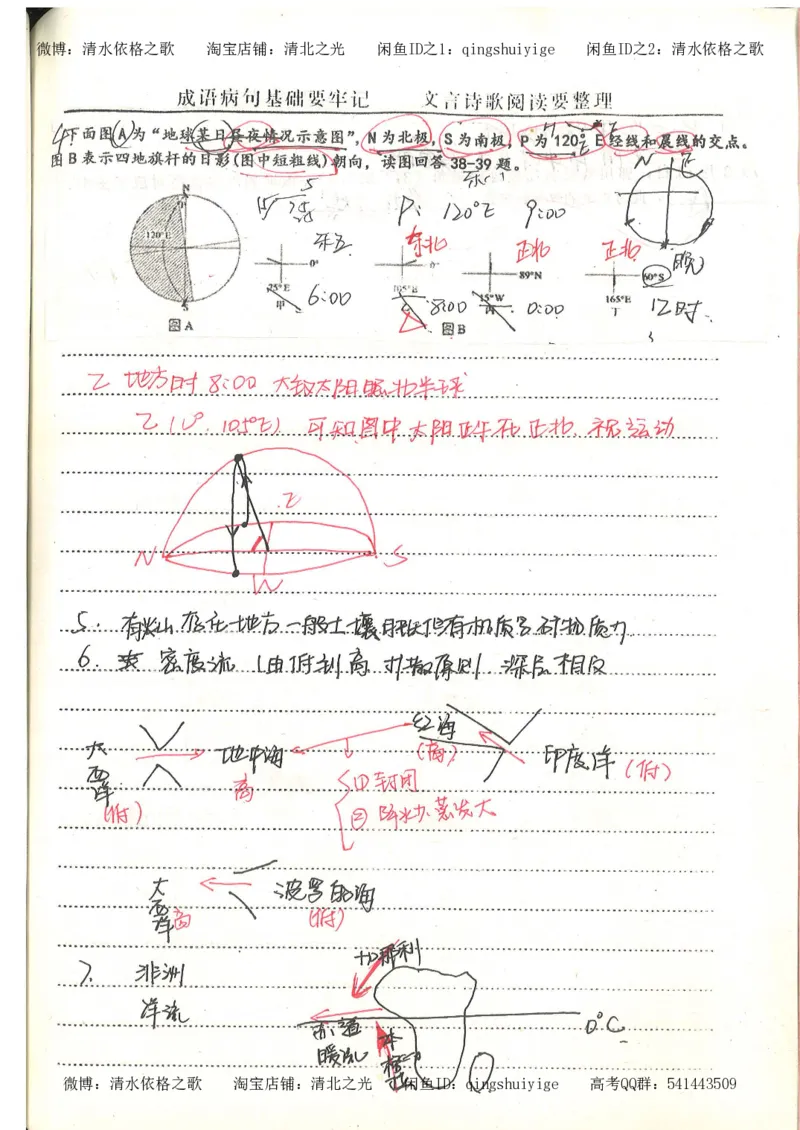 微博：清水依格之歌 淘宝店铺：清北之光 闲鱼ID之1：qingshuiyige 闲鱼ID之2：清水依格之歌
成语病句基础要牢记 文言诗歌阅读要整理
4.下面图A为“地球某日昼夜情况示意图”，N为北极，S为南极，P为120° E经线和晨线的交点。
图B表示四地旗杆的日影(图中短粗线)朝向，读图回答38-39题。
P: 120°E 9:00
N
120°E
S
图A
0°
75°E
甲
6:00
东北
0°
105°E
乙
8:00
正北
89°N
15°W
丙
0:00
正北
60°S
165°E
丁
12时
图B
乙 地方时 8:00 大致太阳照北半球
乙(0°. 105°E) 可知图中太阳正午在正北 视运动
N
S
W
5. 有火山存在地方一般土壤肥沃
6. 密度流 (由低到高 扩散原则. 深层相反
大西洋
(低)
地中海
高
红海
(高)
印度洋
(低)
①封闭
②降水少.蒸发大
大西洋
高
波罗的海
(低)
7. 非洲
洋流
加那利
赤道
暖流
本格
0°C
微博：清水依格之歌 淘宝店铺：清北之光 闲鱼ID：qingshuiyige 高考QQ群：541443509